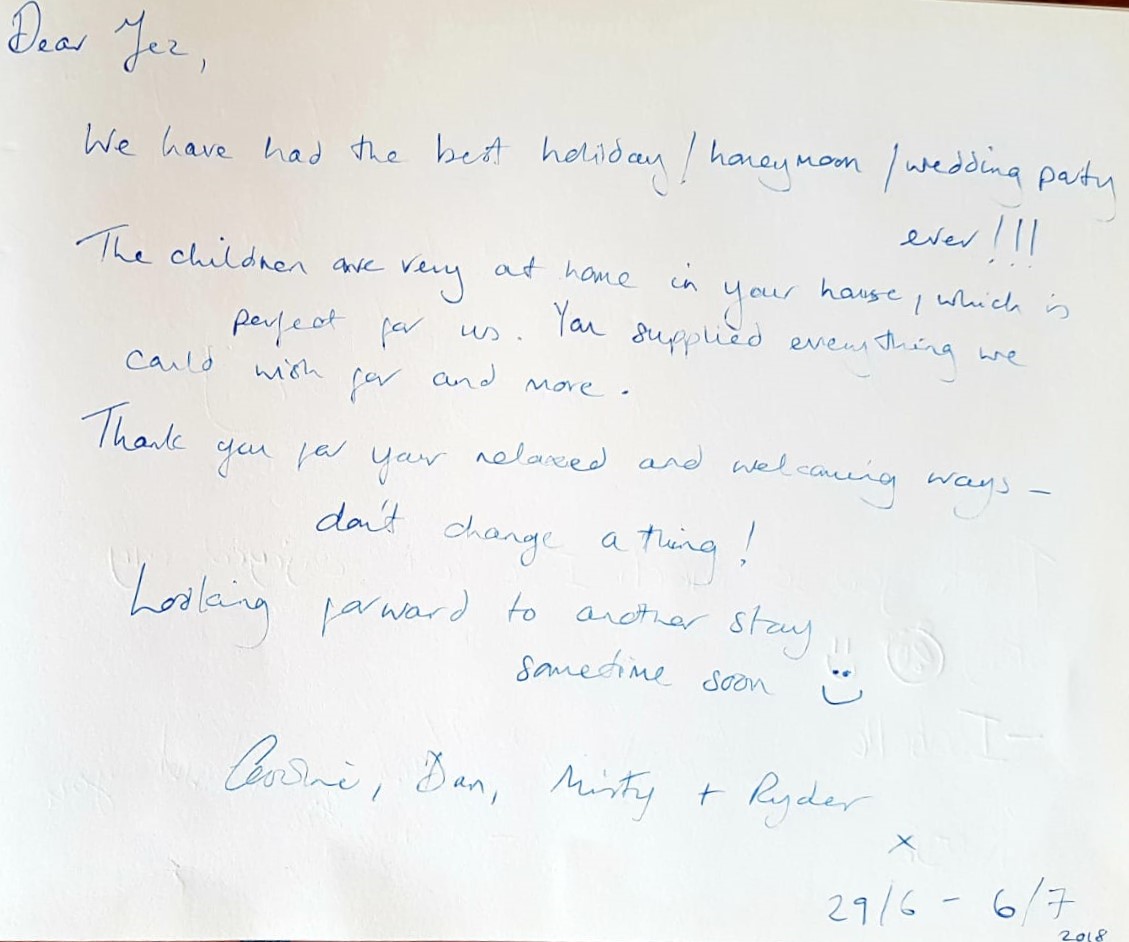 Dear Jez,
We have had the best holiday / honeymoon / wedding party
ever!!!
The children are very at home in your house, which is
perfect for us. You supplied everything we
could wish for and more.
Thank you for your relaxed and welcoming ways -
don't change a thing!
Looking forward to another stay
sometime soon
Dan, Misty + Ryder
x
29/6 - 6/7
2018